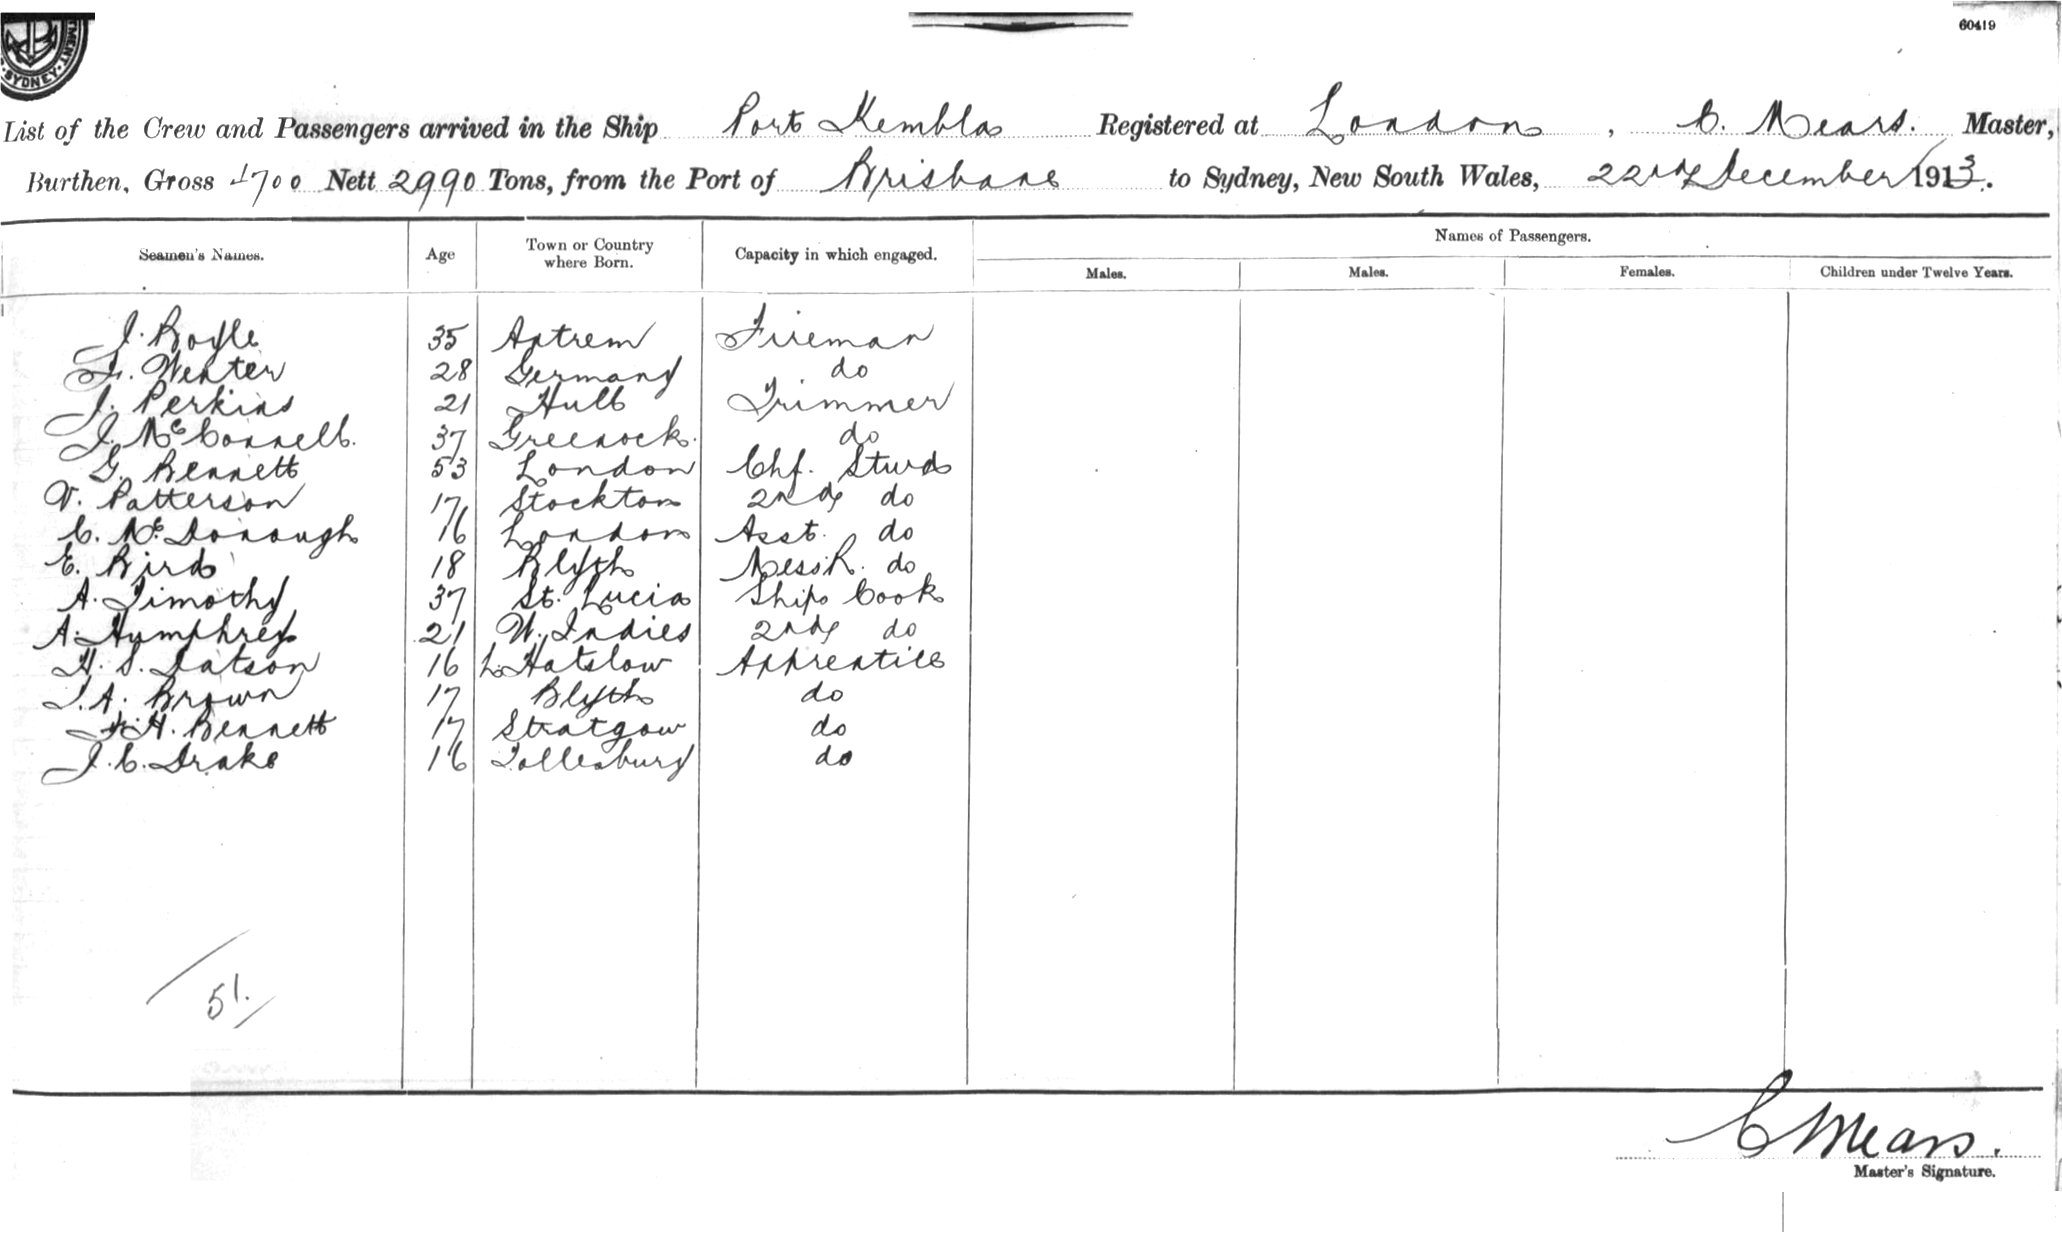 MENT
SYDNEY
60419
List of the Crew and Passengers arrived in the Ship Port Kembla Registered at London, C. Mears. Master,
Burthen, Gross 4700 Nett 2990 Tons, from the Port of Brisbane to Sydney, New South Wales, 22nd December 1913.
Seamen's Names. Age Town or Country where Born. Capacity in which engaged. Names of Passengers.
Males. Males. Females. Children under Twelve Years.
J. Boyle 35 Antrem Fireman
F. Wenter 28 Germany do
J. Perkins 21 Hull Trimmer
J. McConnell. 37 Greenock. do
G. Bennett 53 London Chf. Stwd
V. Patterson 17 Stockton 2nd do
C. McDonough 16 London Asst. do
E. Bird 18 Blyth MessR. do
A. Timothy 37 St. Lucia Ships Cook
A. Humphrey 21 W. Indies 2nd do
H. S. Datson 16 L. Hatslow Apprentice
J. A. Brown 17 Blyth do
F. H. Bennett 17 Stratgow do
J. C. Drake 16 Tollesbury do
51.
C Mears.
Master's Signature.